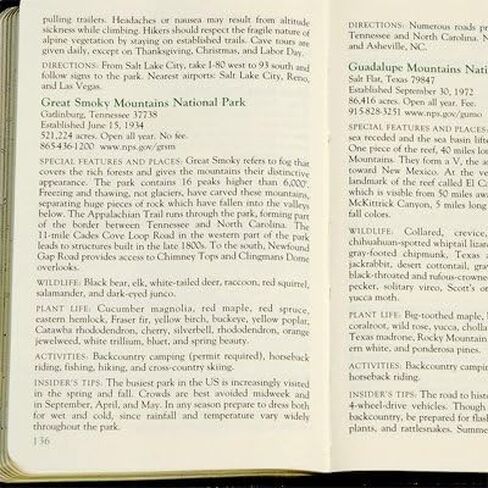 pulling trailers. Headaches or nausea may result from altitude
sickness while climbing. Hikers should respect the fragile nature of
alpine vegetation by staying on established trails. Cave tours are
given daily, except on Thanksgiving, Christmas, and Labor Day.
DIRECTIONS: From Salt Lake City, take I-80 west to 93 south and
follow signs to the park. Nearest airports: Salt Lake City, Reno,
and Las Vegas.
Great Smoky Mountains National Park
Gatlinburg, Tennessee 37738
Established June 15, 1934
521,224 acres. Open all year. No fee.
865-436-1200 www.nps.gov/grsm
SPECIAL FEATURES AND PLACES: Great Smoky refers to fog that
covers the rich forests and gives the mountains their distinctive
appearance. The park contains 16 peaks higher than 6,000'.
Freezing and thawing, not glaciers, have carved these mountains,
separating huge pieces of rock which have fallen into the valleys
below. The Appalachian Trail runs through the park, forming part
of the border between Tennessee and North Carolina. The
11-mile Cades Cove Loop Road in the western part of the park
leads to structures built in the late 1800s. To the south, Newfound
Gap Road provides access to Chimney Tops and Clingmans Dome
overlooks.
WILDLIFE: Black bear, elk, white-tailed deer, raccoon, red squirrel,
salamander, and dark-eyed junco.
PLANT LIFE: Cucumber magnolia, red maple, red spruce,
eastern hemlock, Fraser fir, yellow birch, buckeye, yellow poplar,
Catawba rhododendron, cherry, silverbell, rhododendron, orange
jewelweed, white trillium, bluet, and spring beauty.
ACTIVITIES: Backcountry camping (permit required), horseback
riding, fishing, hiking, and cross-country skiing.
INSIDER'S TIPS: The busiest park in the US is increasingly visited
in the spring and fall. Crowds are best avoided midweek and
in September, April, and May. In any season prepare to dress both
for wet and cold, since rainfall and temperature vary widely
throughout the park.
136
DIRECTIONS: Numerous roads pr
Tennessee and North Carolina. N
and Asheville, NC.
Guadalupe Mountains Nati
Salt Flat, Texas 79847
Established September 30, 1972
86,416 acres. Open all year. Fee.
915-828-3251 www.nps.gov/gumo
SPECIAL FEATURES AND PLACES:
sea receded and the sea basin lifte
One piece of the reef, 40 miles lon
Mountains. They form a V, the a
toward New Mexico. At the ve
landmark of the reef called El Ca
which is visible from 50 miles awa
McKittrick Canyon, 5 miles long
fall colors.
WILDLIFE: Collared, crevice,
chihuahuan-spotted whiptail lizar
gray-footed chipmunk, Texas a
jackrabbit, desert cottontail, gray
black-throated and rufous-crowne
pecker, solitary vireo, Scott's or
yucca moth.
PLANT LIFE: Big-toothed maple, b
coralroot, wild rose, yucca, cholla
Texas madrone, Rocky Mountain
ern white, and ponderosa pines.
ACTIVITIES: Backcountry campin
horseback riding.
INSIDER'S TIPS: The road to histo
4-wheel-drive vehicles. Though
backcountry, be prepared for flash
plants, and rattlesnakes. Summe